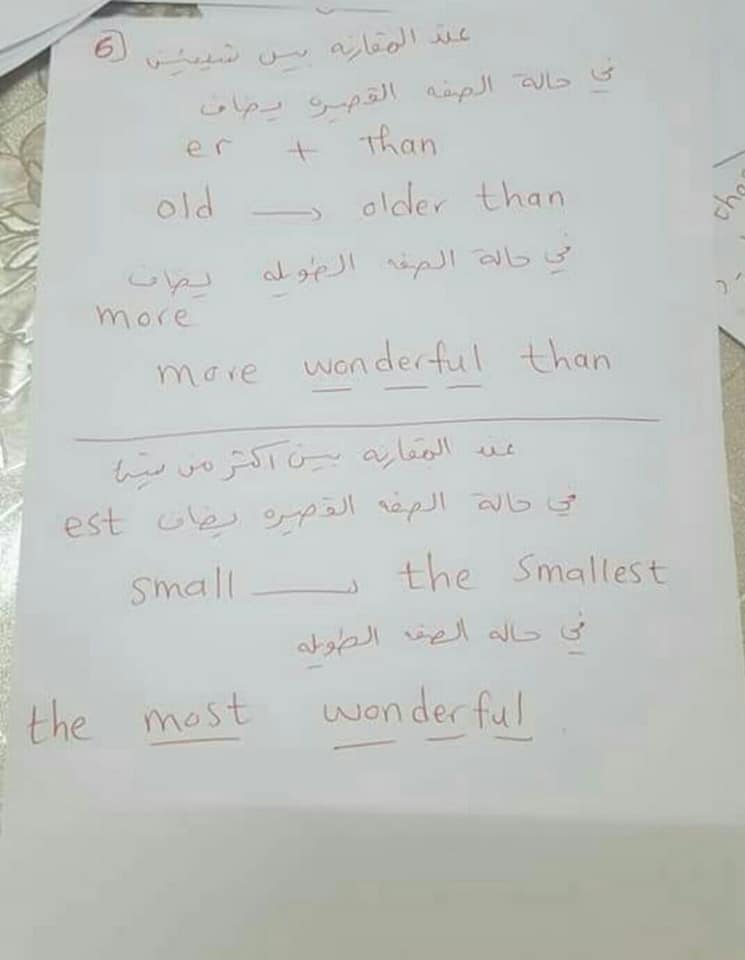 6 عند المقارنه بين شيئين
في حالة الصفه القصيره يضاف
er + than
old → older than
في حالة الصفه الطويله يضاف
more
more wonderful than
عند المقارنه بين اكثر من
في حالة الصفه القصيره يضاف est
small → the smallest
في حاله الصفه الطويله
the most wonderful